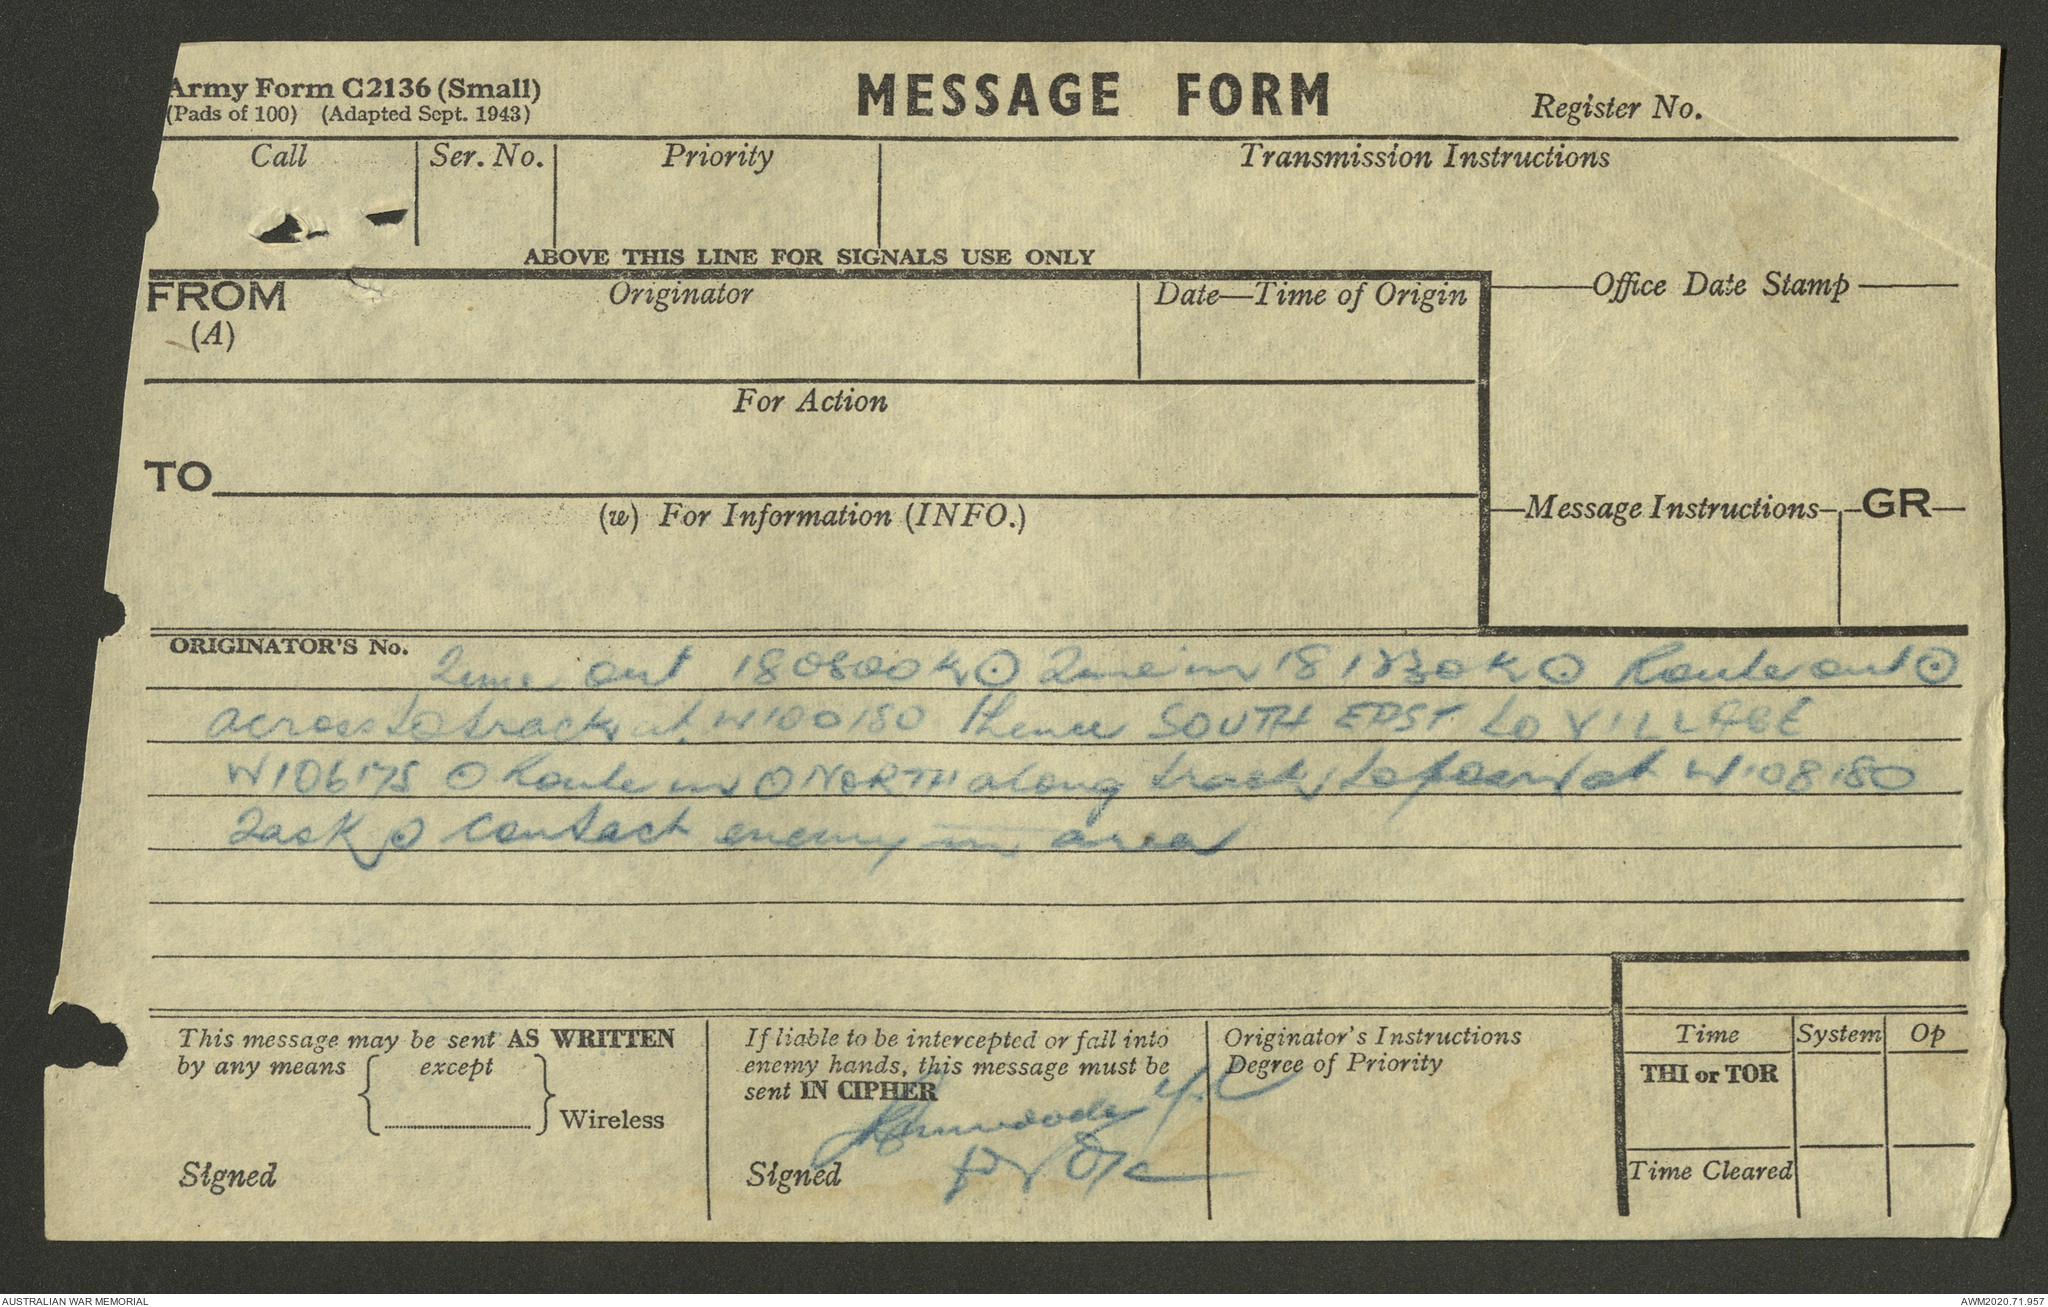 Army Form C2136 (Small)
(Pads of 100) (Adapted Sept. 1943)
MESSAGE FORM
Register No.
Call Ser. No. Priority Transmission Instructions
ABOVE THIS LINE FOR SIGNALS USE ONLY
FROM Originator Date—Time of Origin
(A)
Office Date Stamp
For Action
TO
(w) For Information (INFO.)
Message Instructions GR
ORIGINATOR'S No.
Time out 180800K ⊙ Time in 181830K ⊙ Route out ⊙
across to track at W100180 thence SOUTH EAST to VILLAGE
W106175 ⊙ Route in ⊙ NORTH along track to at W108180
Task ⊙ contact enemy in area
This message may be sent AS WRITTEN
by any means except
Wireless
Signed
If liable to be intercepted or fall into
enemy hands, this message must be
sent IN CIPHER
Signed
Originator's Instructions
Degree of Priority
Time System Op
THI or TOR
Time Cleared
AUSTRALIAN WAR MEMORIAL
AWM2020.71.957